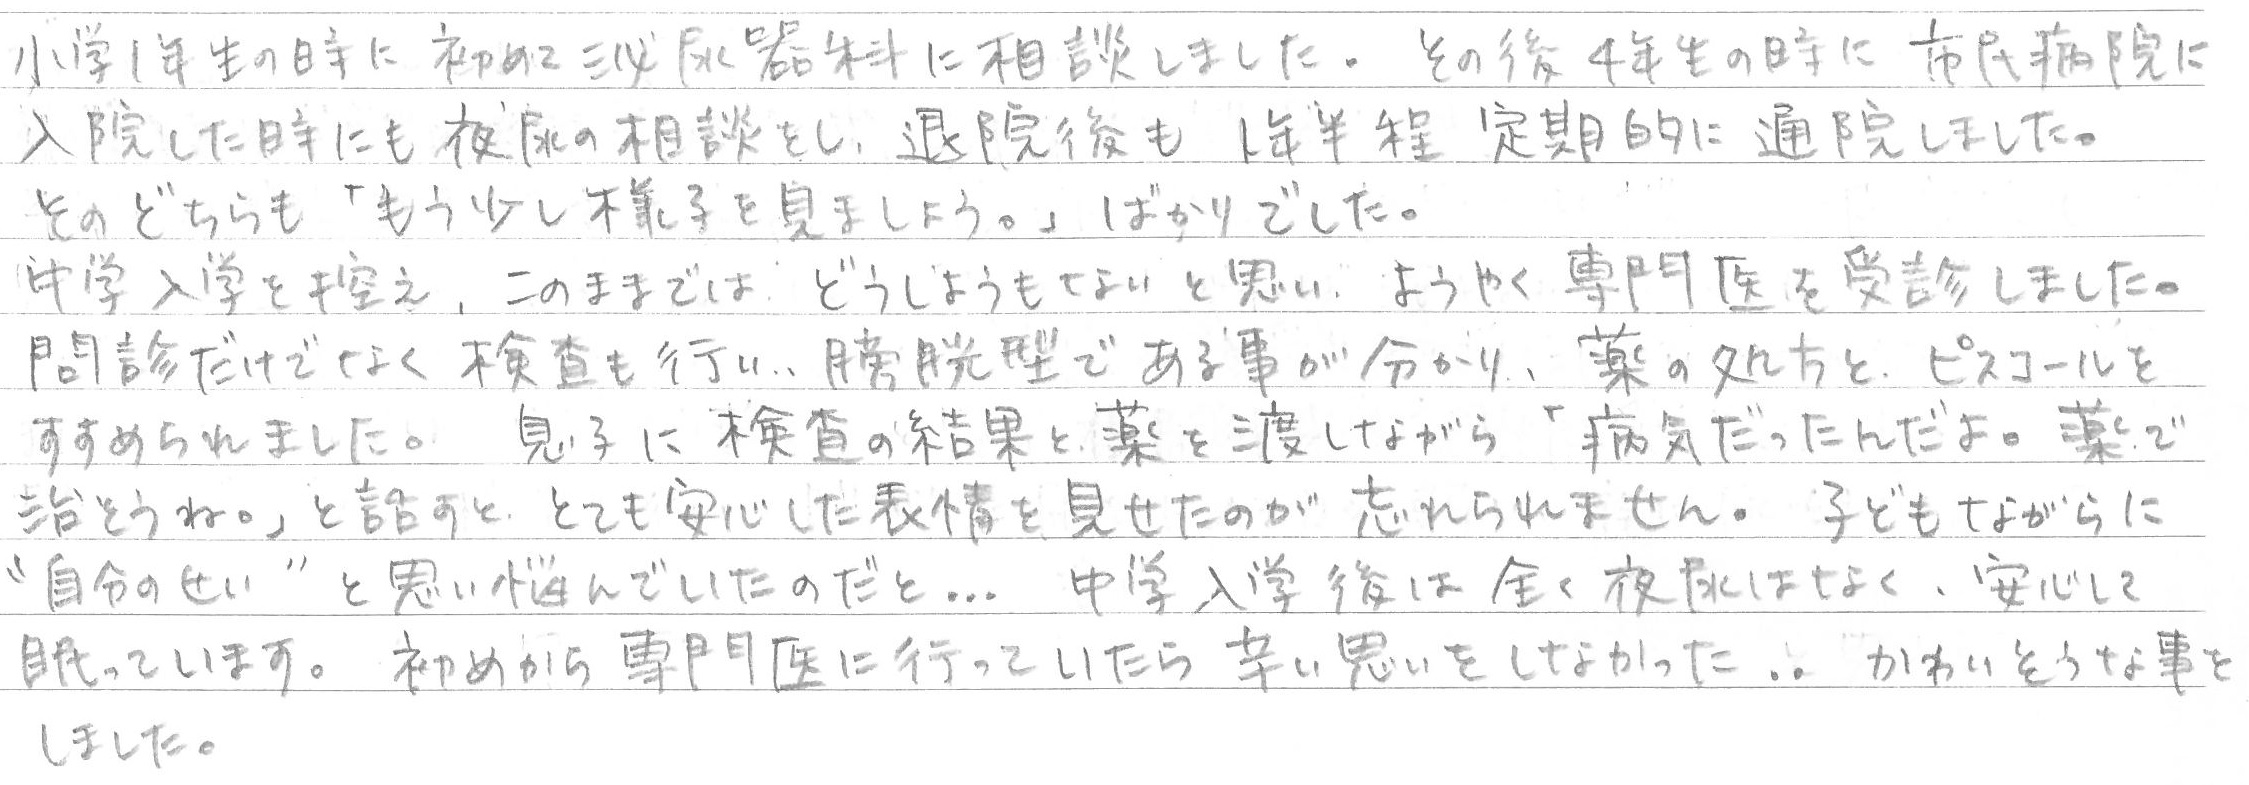 小学1年生の時に初めて泌尿器科に相談しました。その後4年生の時に市民病院に
入院した時にも夜尿の相談をし、退院後も1年半程定期的に通院しました。
そのどちらも「もう少し様子を見ましょう。」ばかりでした。
中学入学を控え、このままではどうしようもないと思い、ようやく専門医を受診しました。
問診だけでなく検査も行い、膀胱型である事が分かり、薬の処方と、ピスコールを
すすめられました。息子に検査の結果と、薬を渡しながら「病気だったんだよ。薬で
治そうね。」と話すと、とても安心した表情を見せたのが忘れられません。子どもながらに
“自分のせい”と思い悩んでいたのだと… 中学入学後は全く夜尿はなく、安心して
眠っています。初めから専門医に行っていたら辛い思いをしなかった‥かわいそうな事を
しました。